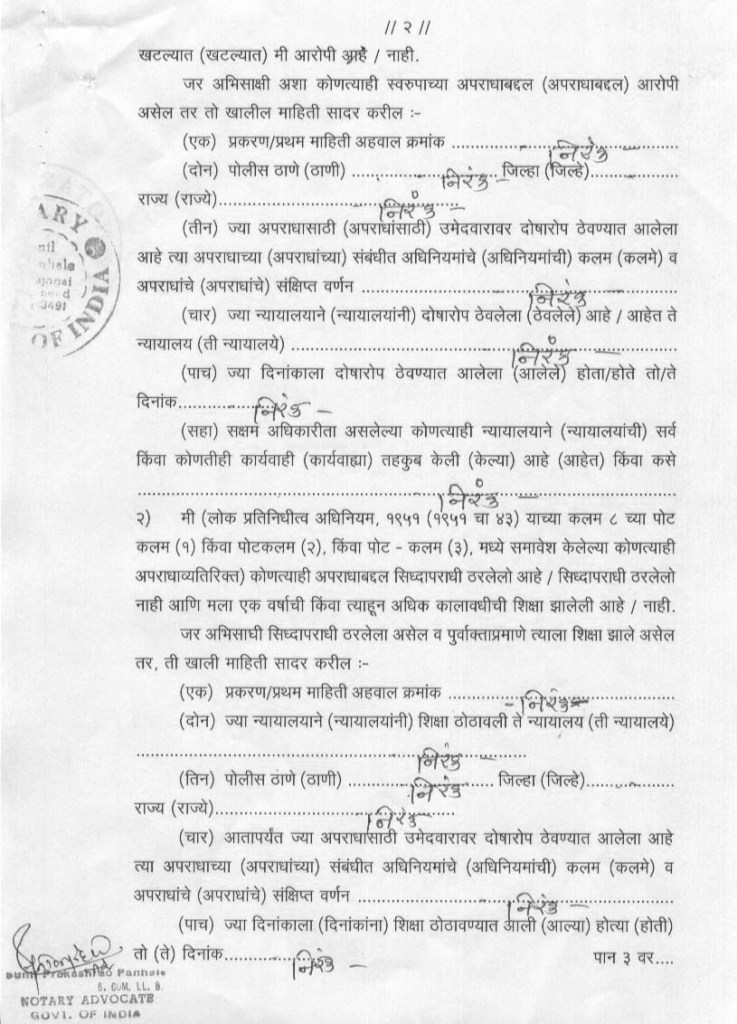 // २ //
खटल्यात (खटल्यात) मी आरोपी आहे / नाही.
जर अभिसाक्षी अशा कोणत्याही स्वरुपाच्या अपराधाबद्दल (अपराधाबद्दल) आरोपी
असेल तर तो खालील माहिती सादर करील :-
(एक) प्रकरण/प्रथम माहिती अहवाल क्रमांक ........ निरंक
(दोन) पोलीस ठाणे (ठाणी) ........ निरंक - जिल्हा (जिल्हे)........
राज्य (राज्ये)........ निरंक -
(तीन) ज्या अपराधासाठी (अपराधांसाठी) उमेदवारावर दोषारोप ठेवण्यात आलेला
आहे त्या अपराधाच्या (अपराधांच्या) संबंधीत अधिनियमांचे (अधिनियमांची) कलम (कलमे) व
अपराधांचे (अपराधांचे) संक्षिप्त वर्णन ........ निरंक -
(चार) ज्या न्यायालयाने (न्यायालयांनी) दोषारोप ठेवलेला (ठेवलेले) आहे / आहेत ते
न्यायालय (ती न्यायालये) ........ निरंक -
(पाच) ज्या दिनांकाला दोषारोप ठेवण्यात आलेला (आलेले) होता/होते तो/ते
दिनांक........ निरंक -
(सहा) सक्षम अधिकारीता असलेल्या कोणत्याही न्यायालयाने (न्यायालयांची) सर्व
किंवा कोणतीही कार्यवाही (कार्यवाह्या) तहकुब केली (केल्या) आहे (आहेत) किंवा कसे
........ निरंक -
२) मी (लोक प्रतिनिधीत्व अधिनियम, १९५१ (१९५१ चा ४३) याच्या कलम ८ च्या पोट
कलम (१) किंवा पोटकलम (२), किंवा पोट - कलम (३), मध्ये समावेश केलेल्या कोणत्याही
अपराधाव्यतिरिक्त) कोणत्याही अपराधाबद्दल सिध्दापराधी ठरलेलो आहे / सिध्दापराधी ठरलेलो
नाही आणि मला एक वर्षाची किंवा त्याहून अधिक कालावधीची शिक्षा झालेली आहे / नाही.
जर अभिसाघी सिध्दापराधी ठरलेला असेल व पुर्वाक्ताप्रमाणे त्याला शिक्षा झाले असेल
तर, ती खाली माहिती सादर करील :-
(एक) प्रकरण/प्रथम माहिती अहवाल क्रमांक ........ - निरंक -
(दोन) ज्या न्यायालयाने (न्यायालयांनी) शिक्षा ठोठावली ते न्यायालय (ती न्यायालये)
........ निरंक -
(तिन) पोलीस ठाणे (ठाणी) ........ निरंक जिल्हा (जिल्हे)........
राज्य (राज्ये)........ निरंक -
(चार) आतापर्यंत ज्या अपराधासाठी उमेदवारावर दोषारोप ठेवण्यात आलेला आहे
त्या अपराधाच्या (अपराधांच्या) संबंधीत अधिनियमांचे (अधिनियमांची) कलम (कलमे) व
अपराधांचे (अपराधांचे) संक्षिप्त वर्णन ........ निरंक -
(पाच) ज्या दिनांकाला (दिनांकांना) शिक्षा ठोठावण्यात आली (आल्या) होत्या (होती)
तो (ते) दिनांक........ निरंक - पान ३ वर....
NOTARY ADVOCATE
GOVT. OF INDIA
OF INDIA